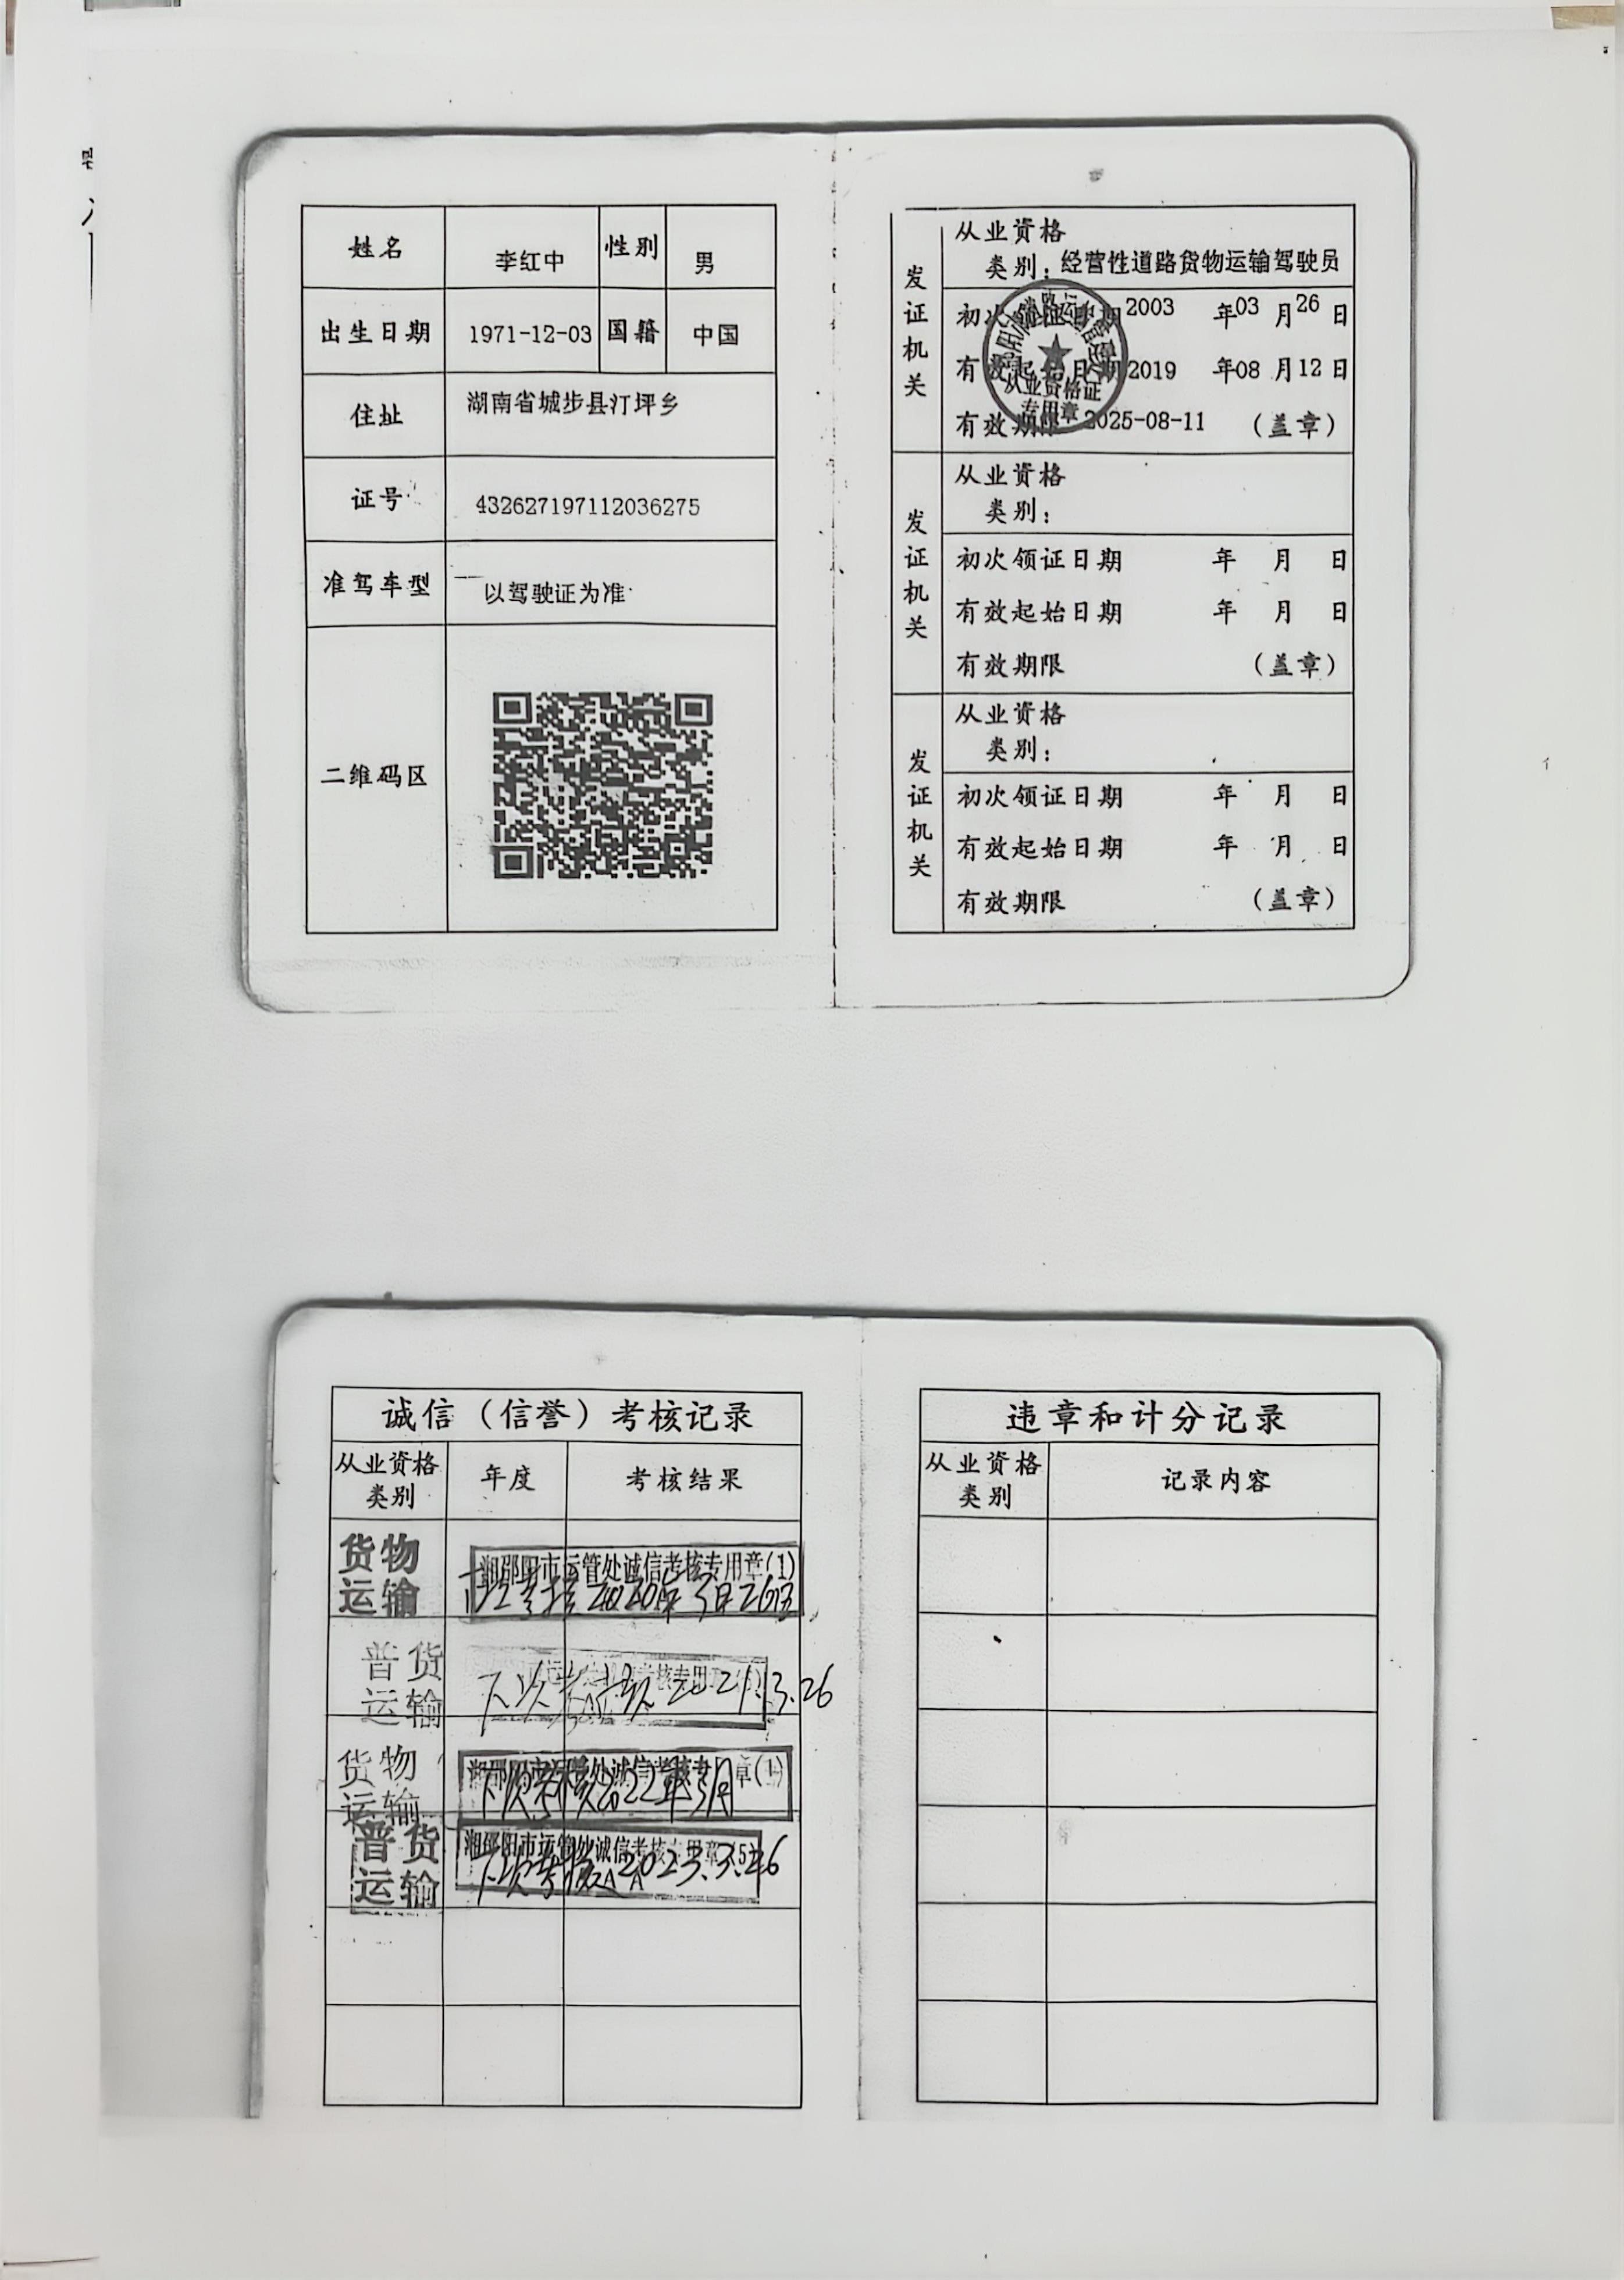 姓名 李红中 性别 男
出生日期 1971-12-03 国籍 中国
住址 湖南省城步县汀坪乡
证号 432627197112036275
准驾车型 以驾驶证为准
二维码区
发证机关
从业资格
类别：经营性道路货物运输驾驶员
初次领证日期 2003 年 03 月 26 日
有效起始日期 2019 年 08 月 12 日
有效期限 2025-08-11 （盖章）
从业资格证
专用章
发证机关
从业资格
类别：
初次领证日期 年 月 日
有效起始日期 年 月 日
有效期限 （盖章）
发证机关
从业资格
类别：
初次领证日期 年 月 日
有效起始日期 年 月 日
有效期限 （盖章）
诚信（信誉）考核记录
从业资格类别 年度 考核结果
货物
运输
湘邵阳市运管处诚信考核专用章(1)
2020年3月26日
普货
运输
下次考核 2021.3.26
货物
运输
湘邵阳市运管处诚信考核专用章(1)
下次考核2022年3月
普货
运输
湘邵阳市运管处诚信考核专用章(5)
下次考核 2023.3.26
违章和计分记录
从业资格类别 记录内容